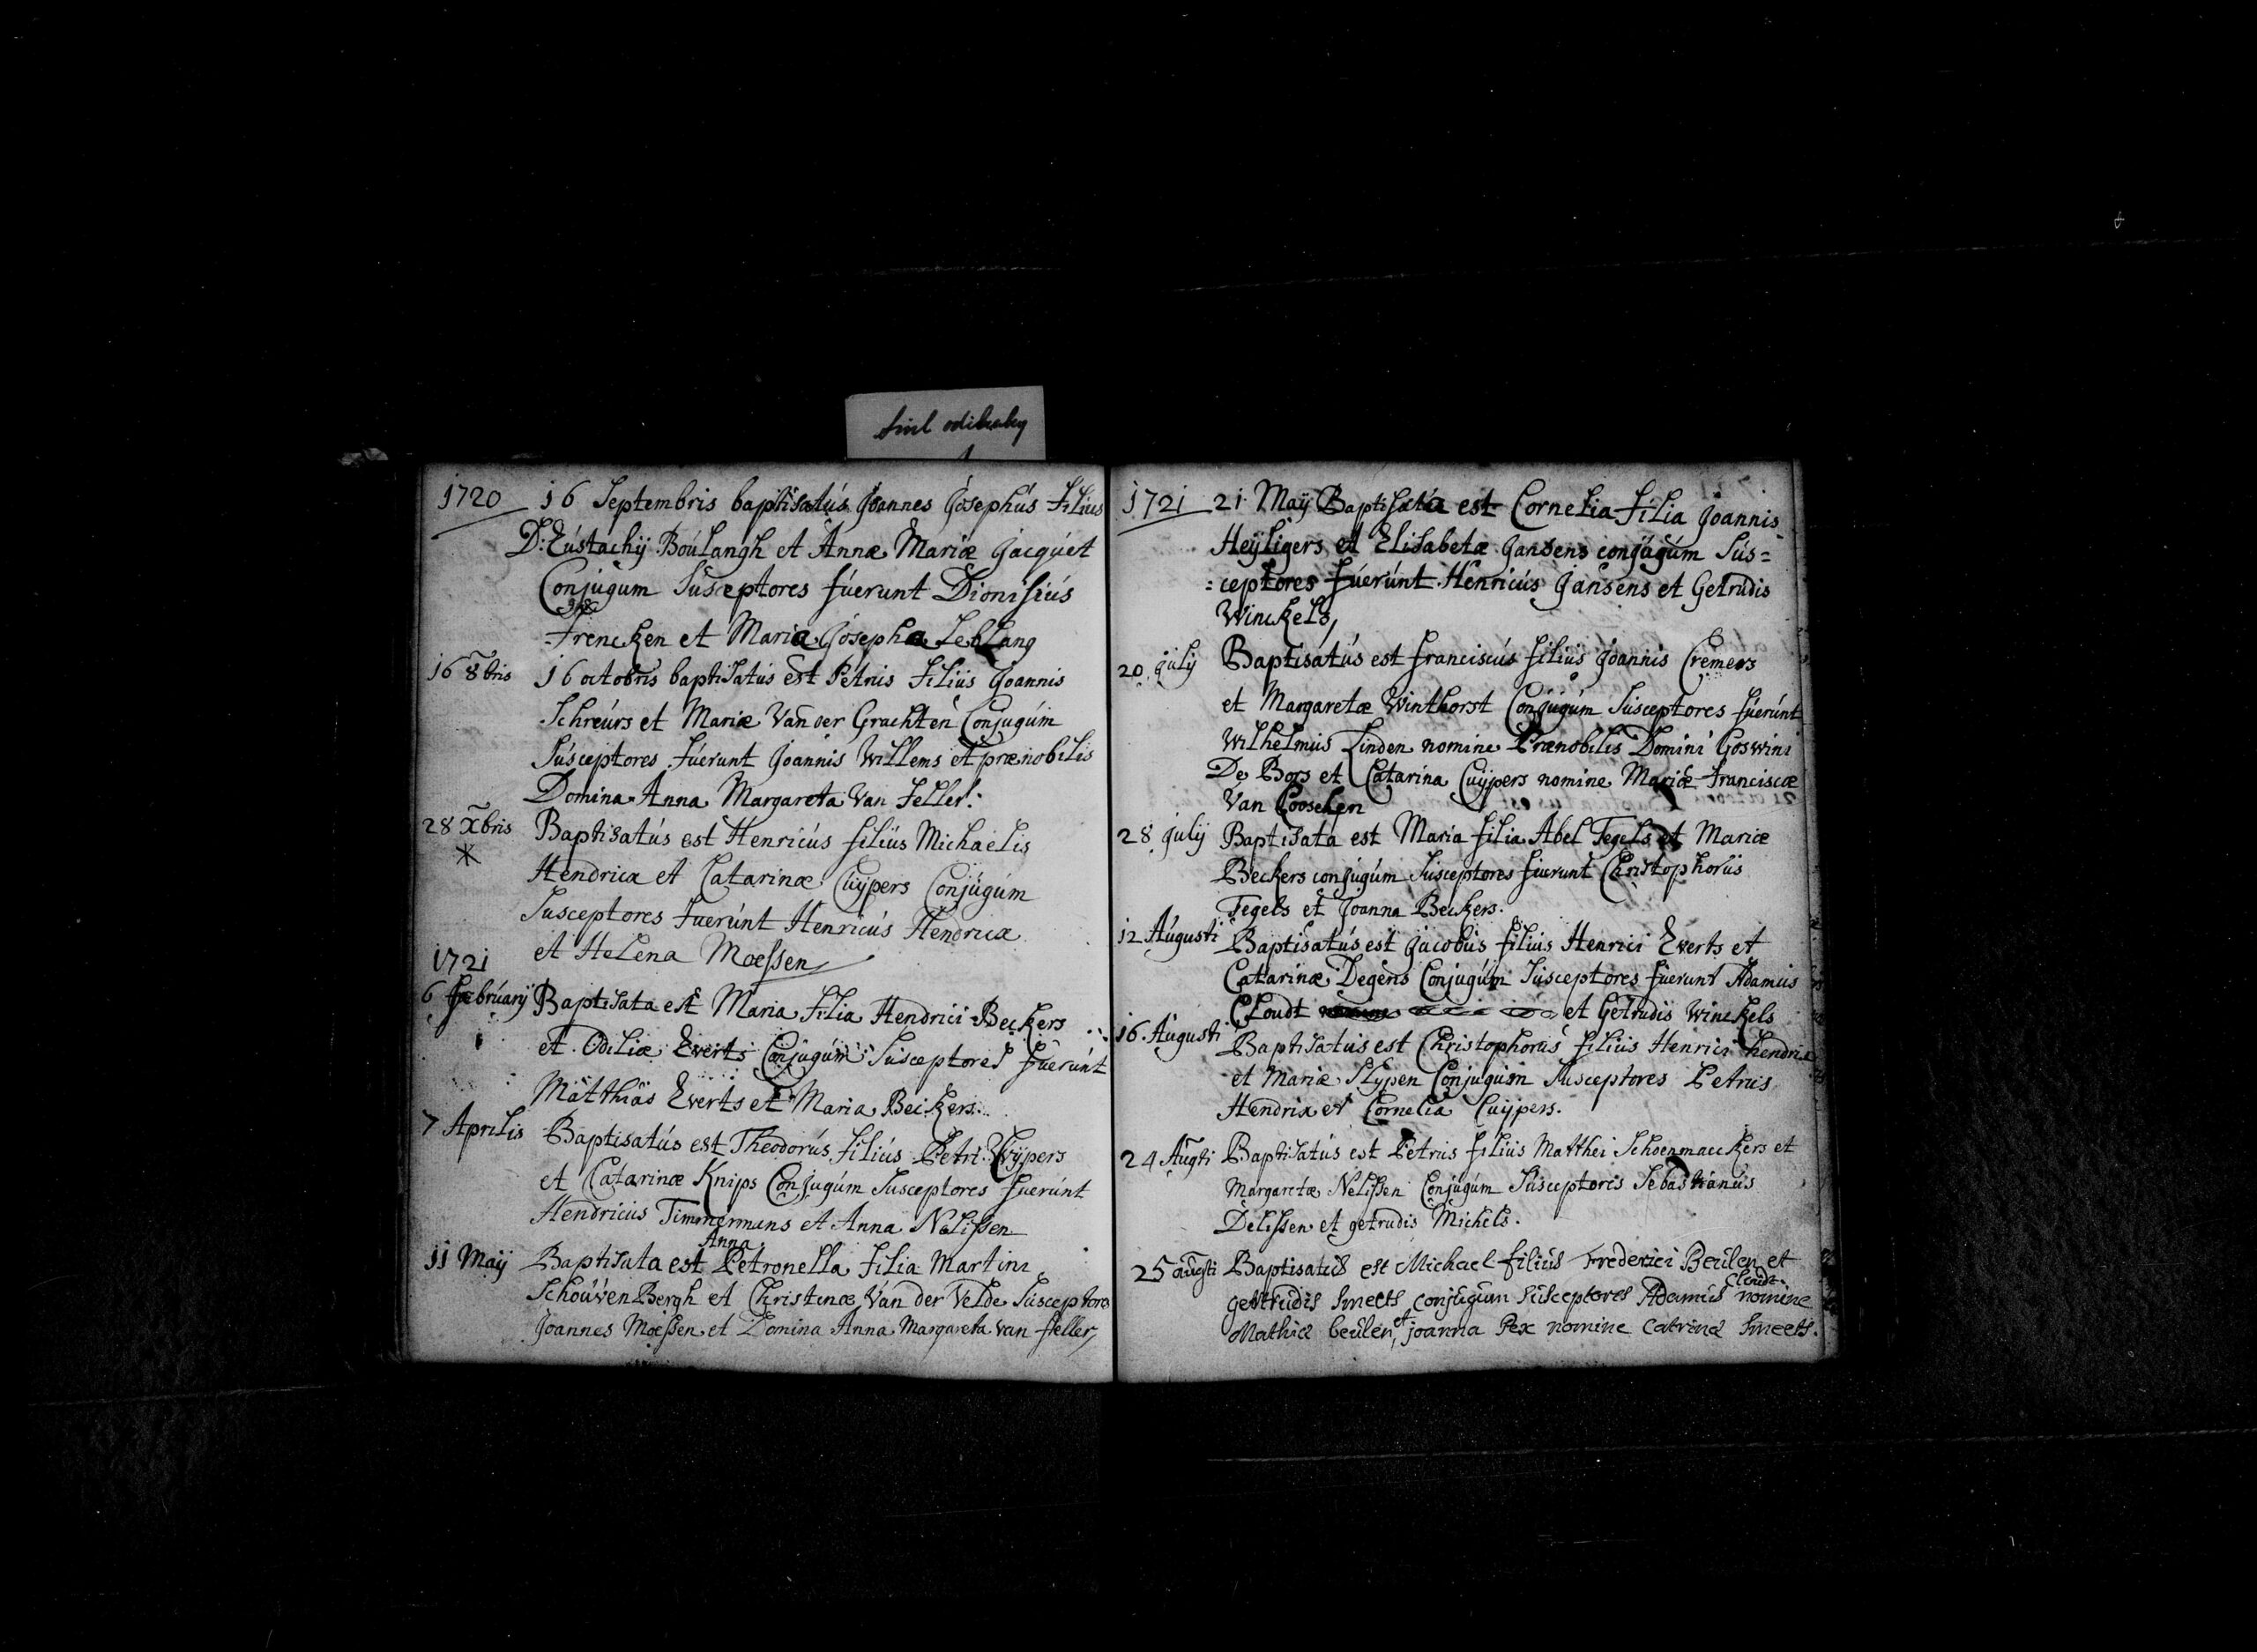 1720 16 Septembris baptisatús Joannes Josephús Filius
D: Eústachij Boúlangh et Annæ Mariæ Jacqúet
Conjúgum Súsceptores fúerunt Dionisiús
Frencken et Maria Josepha Leblang
16 8bris 16 octobris baptisatús est Pétrús Filiús Joannis
Schreúrs et Mariæ Van der Grachten Conjugúm
Súsceptores fúerunt Joannis Willems et prænobilis
Domina Anna Margareta Van Feller.
28 Xbris Baptisatús est Henricús filiús Michaelis
Hendricx et Catarinæ Cuÿpers Conjúgúm
Susceptores fuerúnt Henricús Hendricx
et Helena Moessen
1721
6 februarÿ Baptisata est Maria Filia Hendrici Beckers
et Odiliæ Everts Conjúgúm Súsceptores fúerúnt
Matthias Everts et Maria Beckers.
7 Aprilis Baptisatús est Theodorús filiús Petri Cuÿpers
et Catarinæ Knips Conjúgúm Susceptores fuerúnt
Hendricus Timmermans et Anna Nelissen
Anna
11 Maÿ Baptisata est Petronella filia Martini
Schoúven Bergh et Christinæ Van der Velde Súsceptores
Joannes Moessen et Domina Anna Margareta van feller
1721 21 Maÿ Baptisata est Cornelia filia Joannis
Heÿligers et Elisabetæ Jansens conjúgúm Sús=
=ceptores fúerúnt Henricús Jansens et Getrudis
Winckels
20 júlÿ Baptisatús est franciscús filiús Joannis Cremers
et Margaretæ Winthorst Conjúgúm Súsceptores fúerúnt
Wilhelmús Linden nomine Prænobilis Domini Goswini
De Bors et Catarina Cuÿpers nomine Mariæ Franciscæ
Van
28 júlÿ Baptisata est Maria filia Abel Tegels et Mariæ
Beckers conjúgúm Súsceptores fúerunt Christophorús
Tegels et Joanna Beckers.
12 Aúgusti Baptisatús est Jacobús filiús Henrici Everts et
Catarinæ Degens Conjúgúm Súsceptores fúerunt Adamús
Cloudt et Getrúdis Winckels
16 Aúgusti Baptisatús est Christophorús filiús Henrici hendrix
et Mariæ Slÿpen Conjúgúm Súsceptores Petrús
Hendrix et Cornelia Cuÿpers.
24 Aúgti Baptisatús est Petrús filiús Matthei Schoenmaeckers et
Margaretæ Nelissen Conjúgúm Súsceptores Sebastianús
Delissen et getrudis Michels.
25 aúgti Baptisatús est Michael filiús Frederici Beúlen et
Cloudt
gertrúdis Smeets conjúgúm súsceptores Adamús nomine
et
Mathiæ beúlen, joanna Pex nomine Catrinæ Smeets.